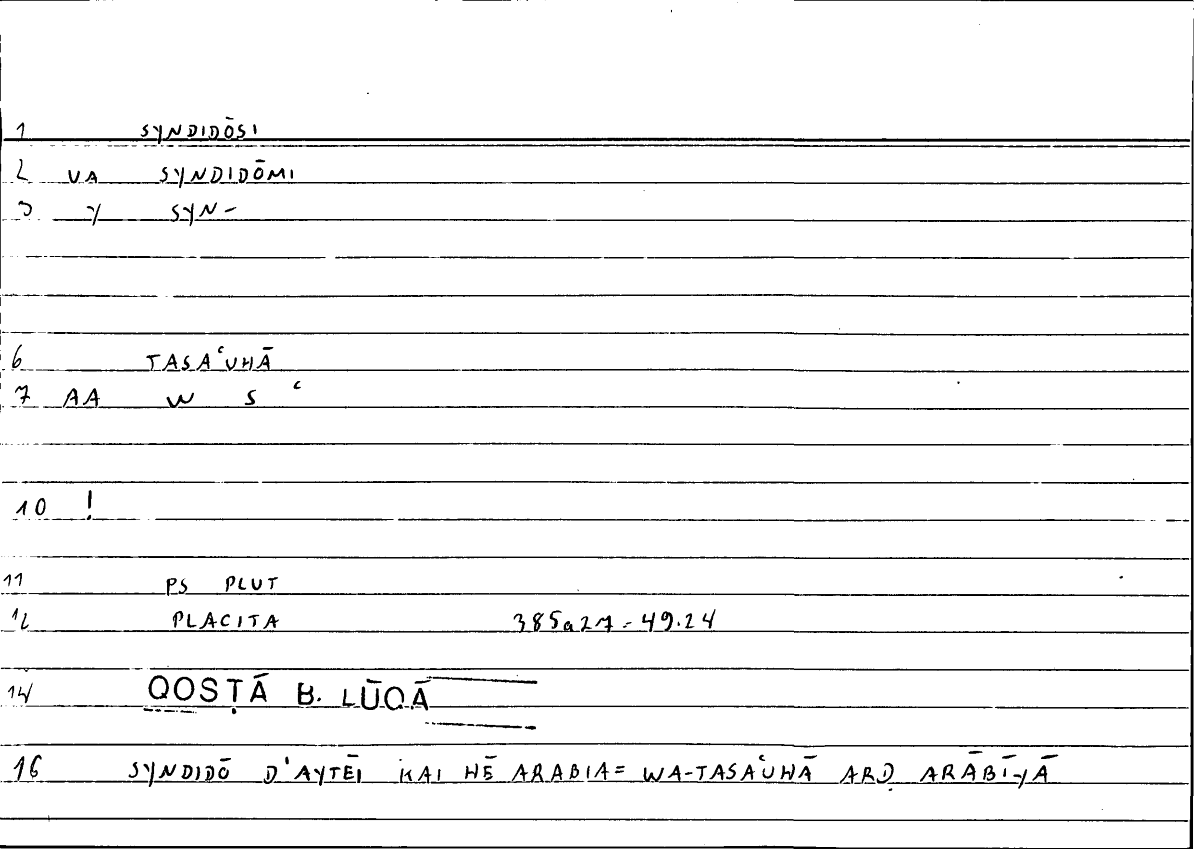 1 SYNDIDŌSI
2 VA SYNDIDŌMI
3 Y SYN-
6 TASAʿUHĀ
7 AA W S ʿ
10 !
11 PS PLUT
12 PLACITA 385a27-49.24
14 QOSṬĀ B. LŪQĀ
16 SYNDIDŌ D'AYTĒI KAI HĒ ARABIA= WA-TASAʿUHĀ ARḌ ARĀBĪYĀ